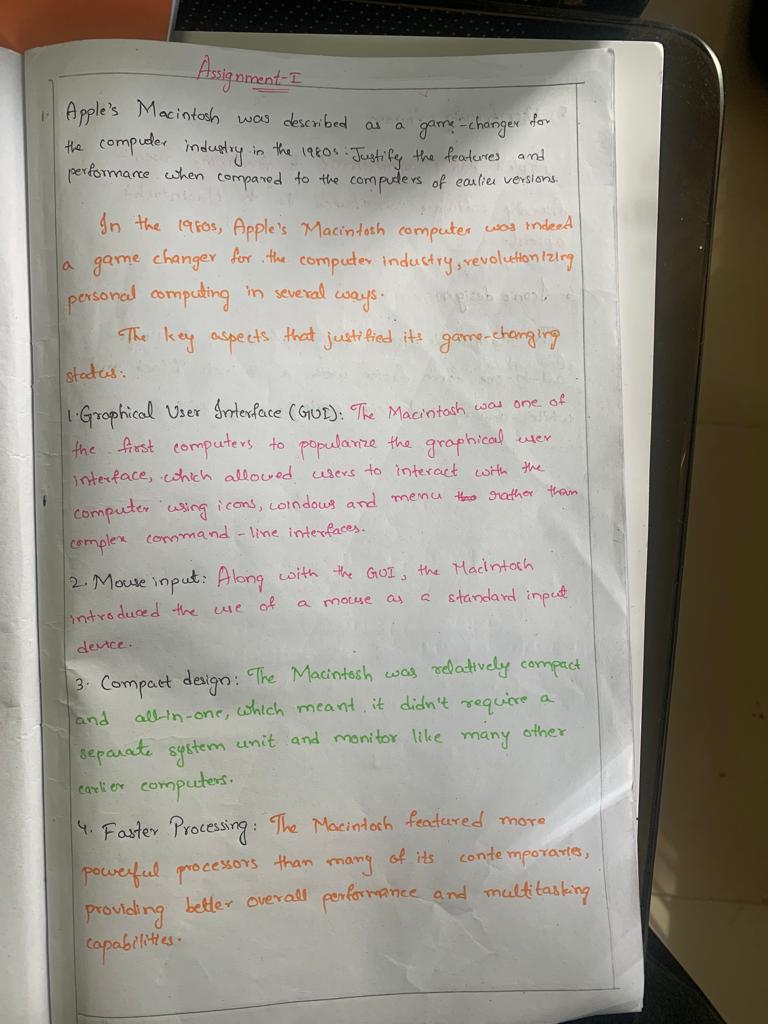 Assignment-I
1. Apple's Macintosh was described as a game-changer for
the computer industry in the 1980s. Justify the features and
performance when compared to the computers of earlier versions.
In the 1980s, Apple's Macintosh computer was indeed
a game changer for the computer industry, revolutionizing
personal computing in several ways.
The key aspects that justified its game-changing
status:
1. Graphical User Interface (GUI): The Macintosh was one of
the first computers to popularize the graphical user
interface, which allowed users to interact with the
computer using icons, windows and menu rather than
complex command-line interfaces.
2. Mouse input: Along with the GUI, the Macintosh
introduced the use of a mouse as a standard input
device.
3. Compact design: The Macintosh was relatively compact
and all-in-one, which meant it didn't require a
separate system unit and monitor like many other
earlier computers.
4. Faster Processing: The Macintosh featured more
powerful processors than many of its contemporaries,
providing better overall performance and multitasking
capabilities.